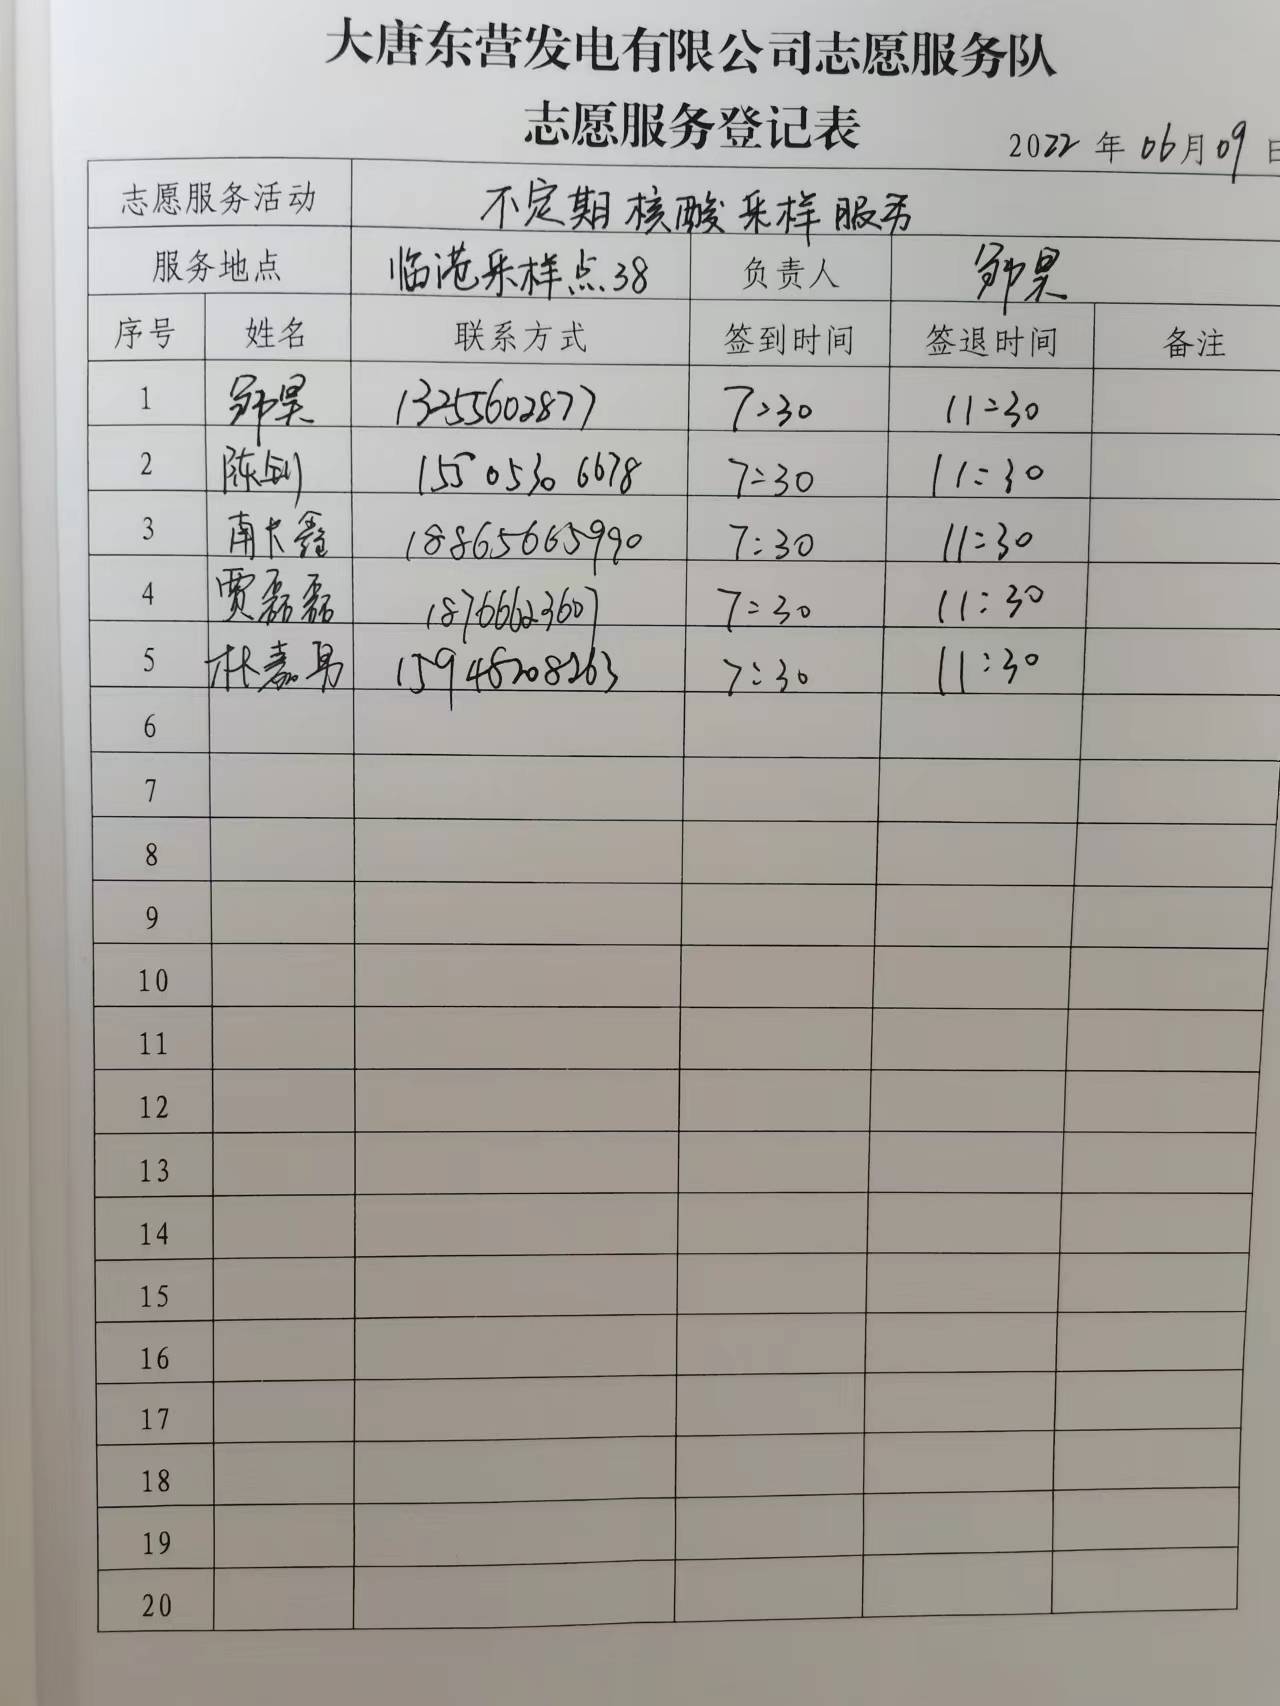 大唐东营发电有限公司志愿服务队
志愿服务登记表
2022年06月09日
志愿服务活动 不定期核酸采样服务
服务地点 临港采样点38 负责人 郭昊
序号 姓名 联系方式 签到时间 签退时间 备注
1 郭昊 13255602877 7:30 11:30
2 陈剑 15505306678 7:30 11:30
3 南大鑫 18865665990 7:30 11:30
4 贾磊磊 18766623607 7:30 11:30
5 杜嘉男 15948208263 7:30 11:30
6
7
8
9
10
11
12
13
14
15
16
17
18
19
20